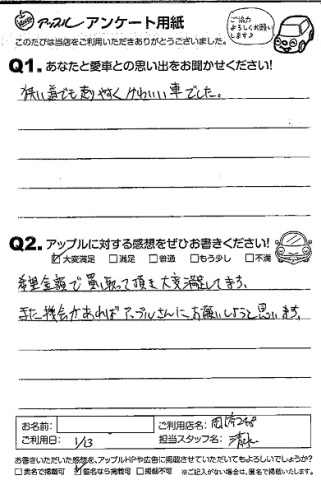 アップル アンケート用紙
ご協力
よろしくお願い
します♪
このたびは当店をご利用いただきありがとうございました。
Q1. あなたと愛車との思い出をお聞かせください!
狭い道でも走りやすくかわいい車でした。
Q2. アップルに対する感想をぜひお書きください!
☑大変満足 □満足 □普通 □もう少し □不満
希望金額で買い取って頂き大変満足してます。
また機会があればアップルさんにお願いしようと思います。
お名前:
ご利用店名:
ご利用日: 1/13
担当スタッフ名: 清水
お書きいただいた感想を、アップルHPや広告に掲載させていただいてもよろしいでしょうか?
□実名で掲載可 ☑匿名なら掲載可 □掲載不可 ※ご記入がない場合は、匿名で掲載いたします。